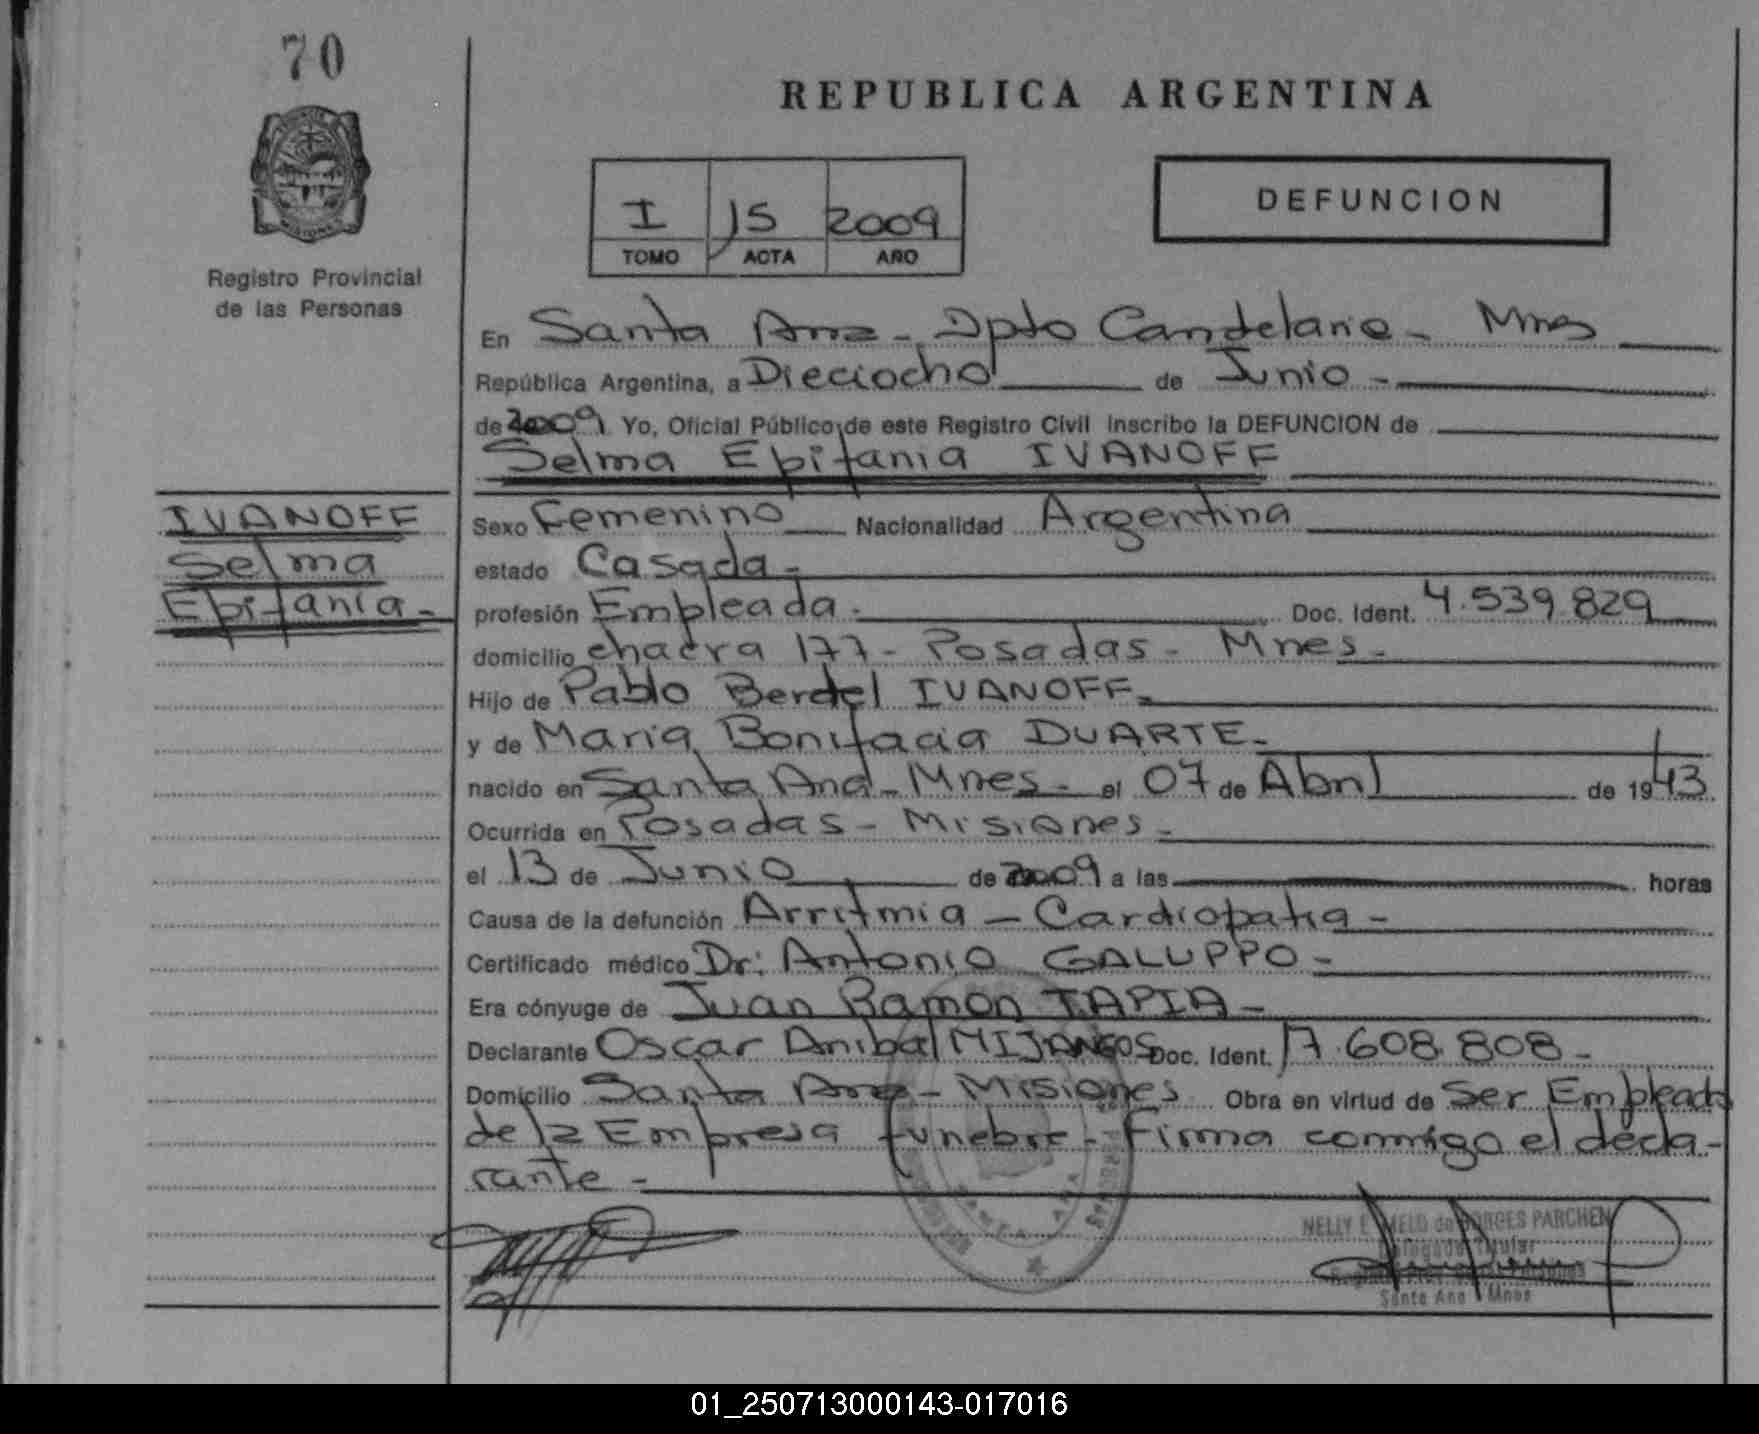 70
REPUBLICA ARGENTINA
DEFUNCION
I 15 2009
TOMO ACTA AÑO
Registro Provincial
de las Personas
MISIONES
En Santa Ana - Dpto Candelaria - Mnes
República Argentina, a Dieciocho de Junio -
de 2009 Yo, Oficial Público de este Registro Civil inscribo la DEFUNCION de
Selma Epifania IVANOFF
IVANOFF
Selma
Epifania -
Sexo Femenino Nacionalidad Argentina
estado Casada -
profesión Empleada - Doc. Ident. 4.539.829
domicilio chacra 177 - Posadas - Mnes -
Hijo de Pablo Berdel IVANOFF -
y de Maria Bonifacia DUARTE -
nacido en Santa Ana - Mnes - el 07 de Abril de 1943
Ocurrida en Posadas - Misiones -
el 13 de Junio de 2009 a las horas
Causa de la defunción Arritmia - Cardiopatia -
Certificado médico Dr: Antonio GALUPPO -
Era cónyuge de Juan Ramon TAPIA -
Declarante Oscar Anibal MIJANGOS Doc. Ident. 17.608.808 -
Domicilio Santa Ana - Misiones Obra en virtud de Ser Empleado
de la Empresa funebre - Firma conmigo el decla-
rante -
SANTA ANA
NELLY E MELO de BORGES PARCHEN
Delegada Titular
Santa Ana Mnes
01_250713000143-017016